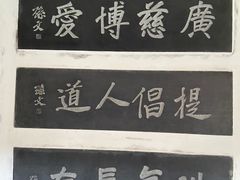 廣慈博愛 孫文
提倡人道 孫文